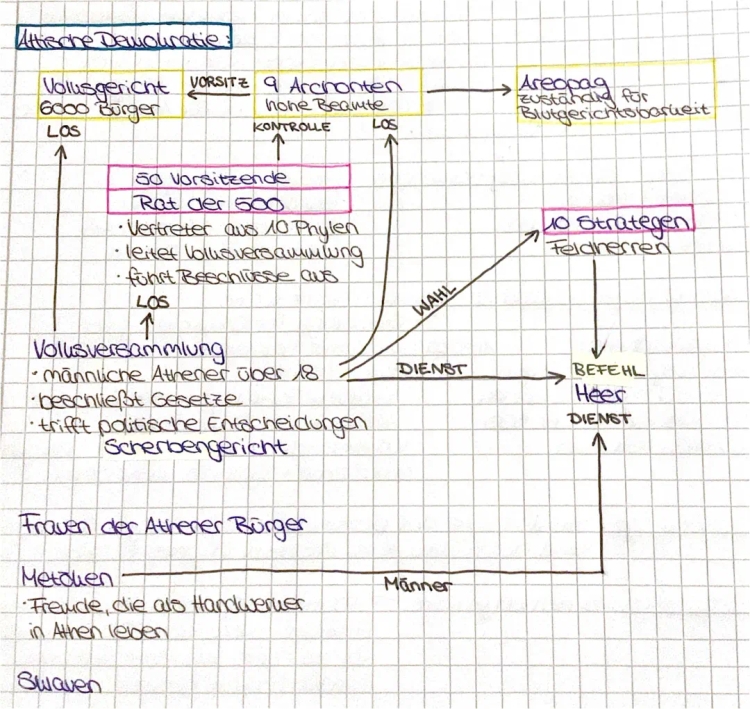 Attische Demokratie:
Volksgericht
6000 Bürger
LOS
VORSITZ
9 Archonten
hohe Beamte
KONTROLLE
LOS
Areopag
zuständig für
Blutgerichtsbarkeit
50 Vorsitzende
Rat der 500
· Vertreter aus 10 Phylen
· leitet Volksversammlung
· führt Beschlüsse aus
LOS
10 Strategen
Feldherren
WAHL
Volksversammlung
· männliche Athener über 18
· beschließt Gesetze
· trifft politische Entscheidungen
Scherbengericht
DIENST
BEFEHL
Heer
DIENST
Frauen der Athener Bürger
Metöken
Männer
· Fremde, die als Handwerker
in Athen leben
Sklaven